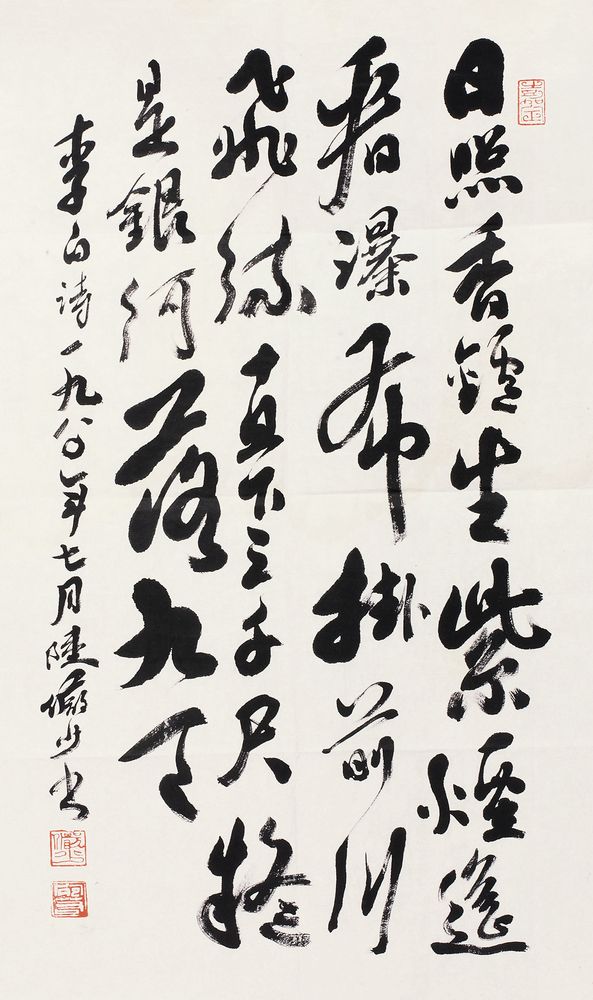 日照香鑪生紫煙遙
看瀑布掛前川
飛流直下三千尺疑
是銀河落九天
李白詩一九八〇年七月陸儼少書